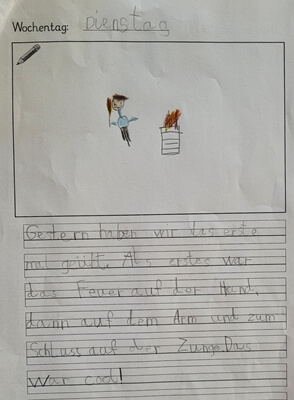 Wochentag: Dienstag
Gestern haben wir das erste
mal geübt. Als erstes war
das Feuer auf der Hand,
dann auf dem Arm und zum
Schluss auf der Zunge. Das
War cool!